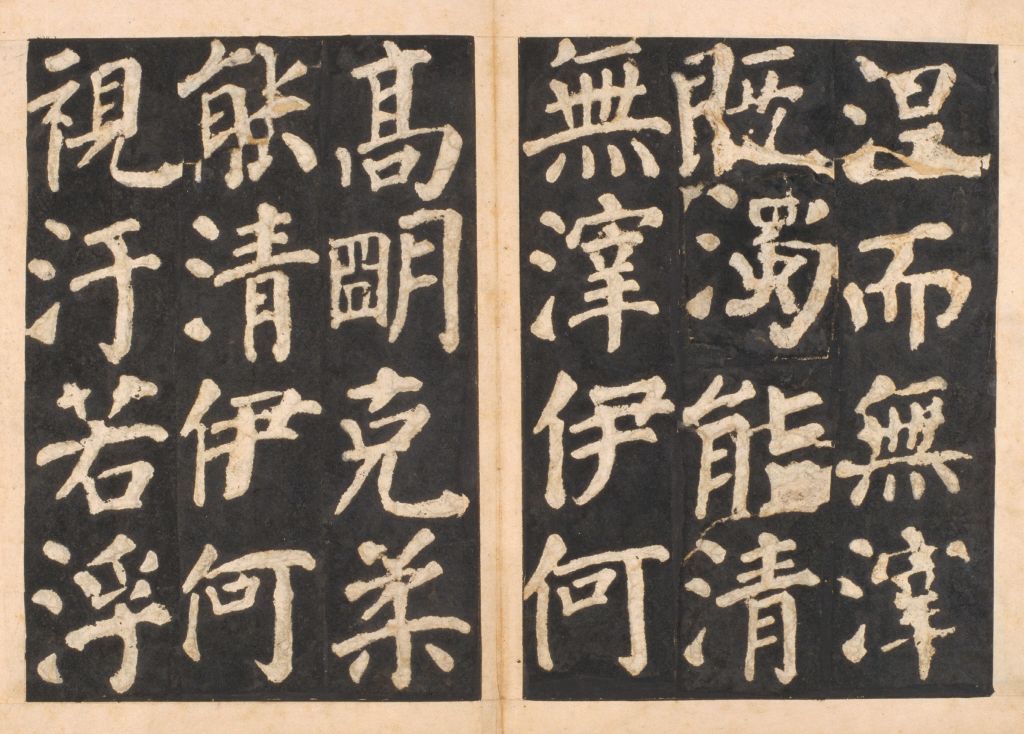 涅而無滓
既濁能清
無滓伊何
高明克柔
能清伊何
視汙若浮